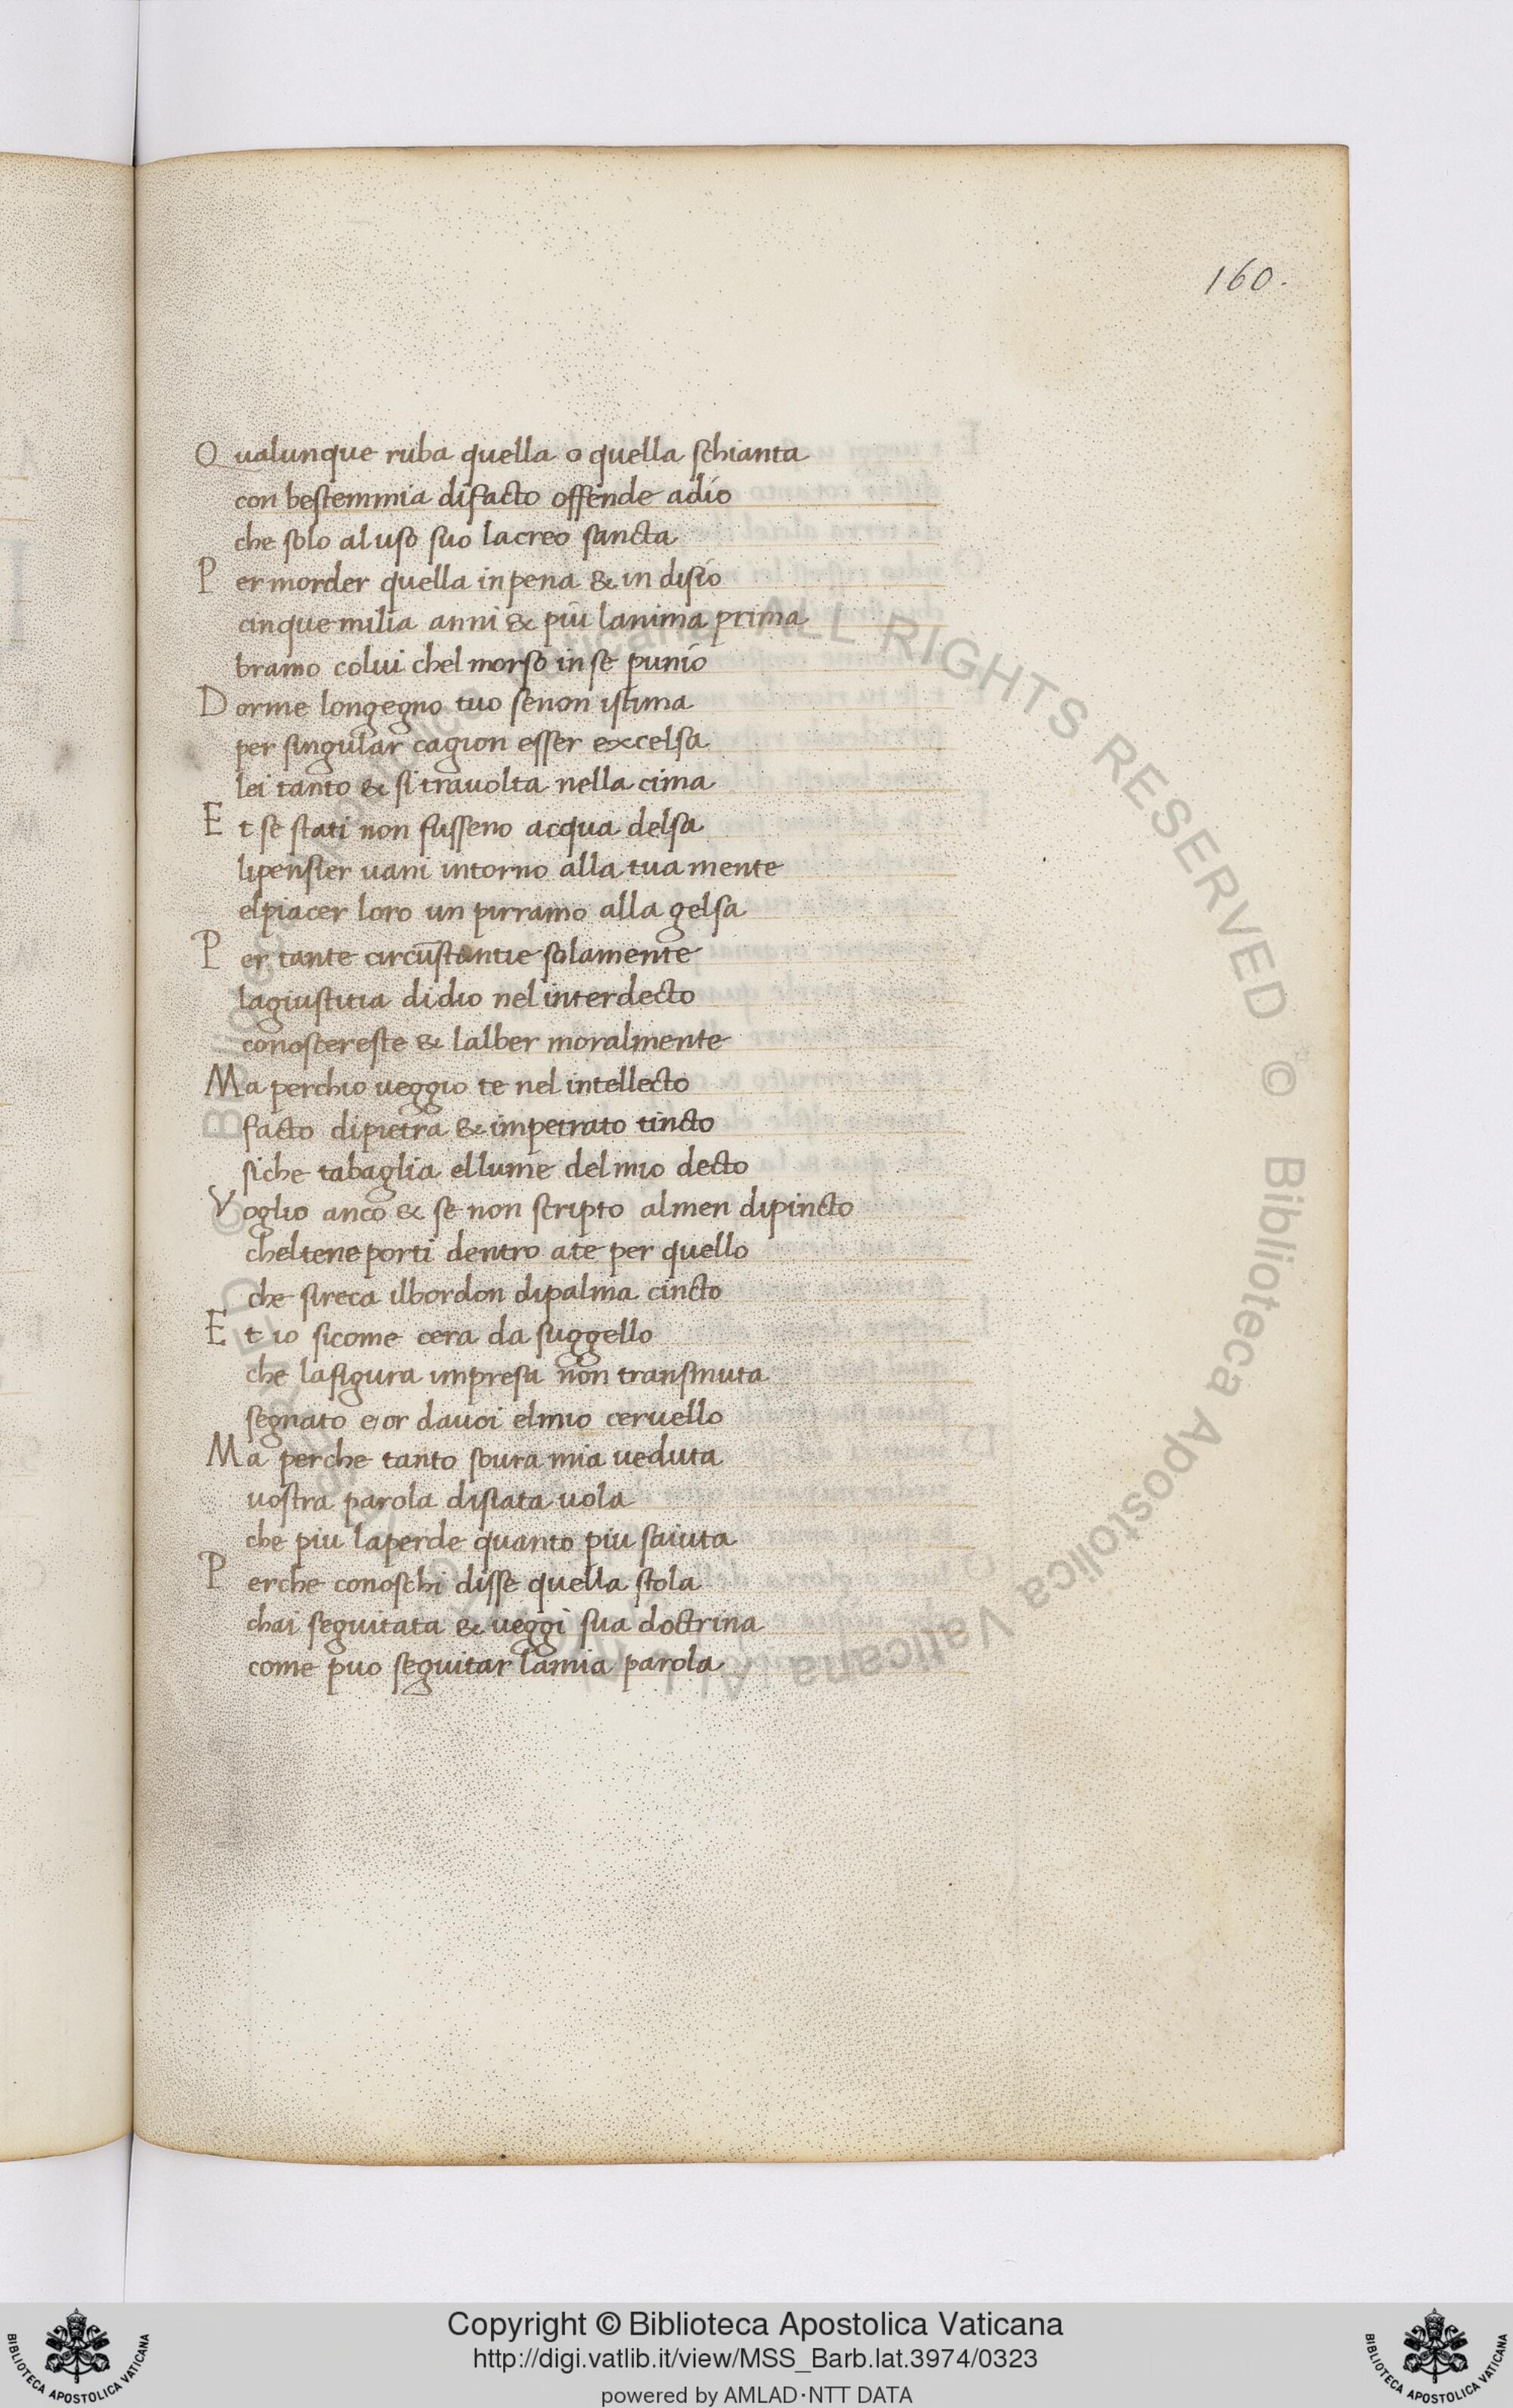 160.
Qualunque ruba quella o quella schianta
con bestemmia difacto offende adio
che solo al uso suo lacreo sancta
Per morder quella in pena & in disio
cinque milia anni & piu lanima prima
bramo colui chel morso in se punio
Dorme longegno tuo senon istima
per singular cagion esser excelsa
lei tanto & si trauolta nella cima
Et se stati non fusseno acqua delsa
lipensier uani intorno alla tua mente
elpiacer loro un pirramo alla gelsa
Per tante circūstantie solamente
lagiustitia didio nel interdecto
conoscereste & lalber moralmente
Ma perchio veggio te nel intellecto
facto dipietra & impetrato tincto
siche tabaglia ellume del mio decto
Voglio anco & se non scripto almen dipincto
cheltene porti dentro ate per quello
che sireca ilbordon dipalma cincto
Et io sicome cera da suggello
che lafigura impresa non transmuta
segnato e or davoi elmio ceruello
Ma perche tanto soura mia veduta
uostra parola disiata uola
che piu laperde quanto piu saiuta
Perche conoschi disse quella scola
chai seguitata & veggi sua doctrina
come puo seguitar lamia parola
Biblioteca Apostolica Vaticana ALL RIGHTS RESERVED ©
Copyright © Biblioteca Apostolica Vaticana
http://digi.vatlib.it/view/MSS_Barb.lat.3974/0323
powered by AMLAD·NTT DATA
BIBLIOTECA APOSTOLICA VATICANA
BIBLIOTECA APOSTOLICA VATICANA